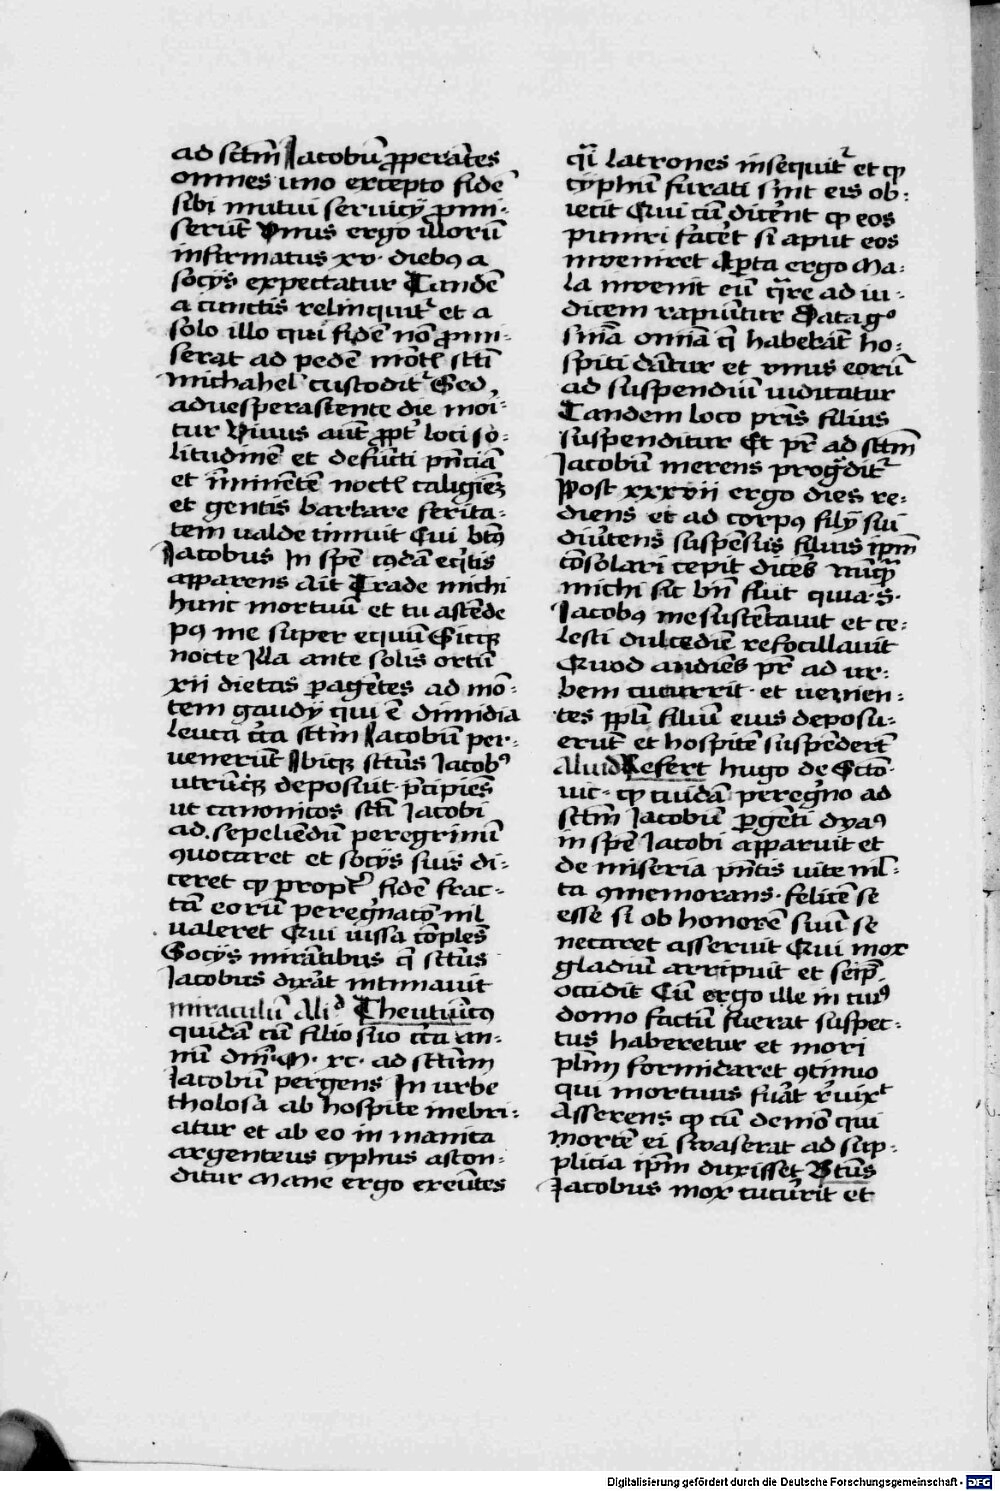 ad sctm̄ Jacobū ꝓperātes
omnes uno excepto fidē
sibi mutui seruicÿ ꝓmi-
serūt Vnus ergo illorū
infirmatus xv· diebꝰ a
socÿs expectatur Tandē
a cunctis relinquit᷑ et a
solo illo qui fidē nō ꝓmi-
serat ad pedē mōt sctī
michahel custodit᷑ Sed
aduesperascente die mori-
tur Viuus aut̄ ꝓpt᷑ loci so-
litudinē et defūcti pn̄ciā
et īminētē noct caligiēȝ
et gentis barbare ferita-
tem ualde timuit Cui btꝰ
Jacobus In spē cꝰdā eqͥtis
apparens Ait Trade michi
hunc mortuū et tu ascēde
pꝰ me super equū Sicqȝ
nocte illa ante solis ortū
xii dietas ꝑagētes ad mō-
tem gaudÿ qui ē dimidia
leuca cͥca sctm̄ Jacobū per-
uenerūt Vbiqȝ sctūs Jacobꝰ
utrūqȝ deposuit p̄cipiēs
ut canonicos sctī Jacobi
ad sepeliēdū peregrinū
ꝯuocaret et socÿs suis di-
ceret ꝙ propt᷑ fidē frac-
tā eorū peregͥnacō nil
ualeret Qui iussa cōplēs
Socÿs mirātibus q̄ sctūs
Jacobus dixāt intimauit
miraculū Aliᵈ Theutūicꝰ
quidā cū filio suo cͥca an-
nū dn̄i·M· xc· ad sctūm
Jacobū pergens In urbe
tholosa ab hospite inebri-
atur et ab eo in manica
argenteus cyphus ascon-
ditur Mane ergo exeūtes
qͣi latrones insequit᷑ et ꝙ
cyphū furati sint eis ob-
iecit Qui cū dicēnt ꝙ eos
puniri facet si aput eos
inueniret Aꝑta ergo Ma-
la inuenit eū qͣre ad iu-
dicem rapiūtur Data gͦ
sn̄ia omīa q̄ habebāt ho-
spiti dātur et vnus eorū
ad suspendiū iudicatur
Tandem loco pris filius
suspenditur Et pr̄ ad sctm̄
Jacobū merens progͣdit᷑
Post xxxvii ergo dies re-
diens et ad corpꝰ filÿ sui
diūtens suspēsus filius ip̄m
cōsolari cepit dicēs nūqͣ
michi sic bn̄ fuit quia·S·
Jacobꝰ me sustētauit et ce-
lesti dulcediē refocillauit
Quod audiēs pr̄ ad ur-
bem cucurrit· et uenien-
tes ppl̄i filiū eius deposu-
erūt et hospitē suspēderūt
Aliud Refert hugo de Scto-
uic- ꝙ cuidā peregͥno ad
sctm̄ Jacobū ꝑgēti dyaꝰ
in spē Jacobi apparuit et
de miseria pn̄tis uite ml̄-
ta ꝯmemorans· felicē se
esse si ob honorē suū se
necaret asseruit Qui mox
gladiū arripuit et seip̄m
occidit Cū ergo ille in cuiꝰ
domo factū fuerat suspec-
tus haberetur et mori
pl̄im formidaret ꝯtinuo
qui mortuus fuāt r̄uixᵗ
Asserens ꝙ cū demō qui
mortē ei suaserat ad sup-
plicia ip̄m duxisset Btūs
Jacobus mox cucūrit et